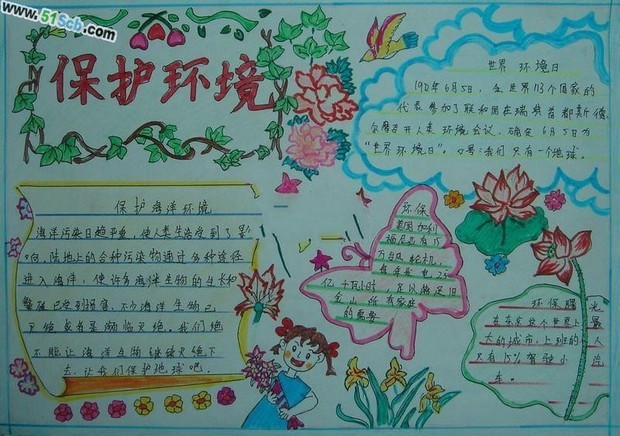 www.51Scb.com
保护环境
世界 环境日
1972年6月5日,在世界113个国家的
代表参加了联和国在瑞典首都斯德
尔摩召开人类环境会议,确定6月5日为
"世界环境日"。口号:我们只有一个地球。
保护海洋环境
海洋污染日趋严重,使人类生活受到了影
响,陆地上的各种污染物通过各种途径
进入海洋,使许多海洋生物的生长和
繁殖已受到损害,不少海洋生物已
灭绝或者是濒临灭绝。我们绝
不能让海洋生物继续灭绝下
去,让我们保护地球吧。
环保
美国加利
福尼亚有15
万台风轮机,
每年发电25
亿千瓦小时,足以满足旧
金山所有家庭
的需要
环保曙光
在东京这个世界上最
大的城市,上班的人
只有15%驾驶小
车。